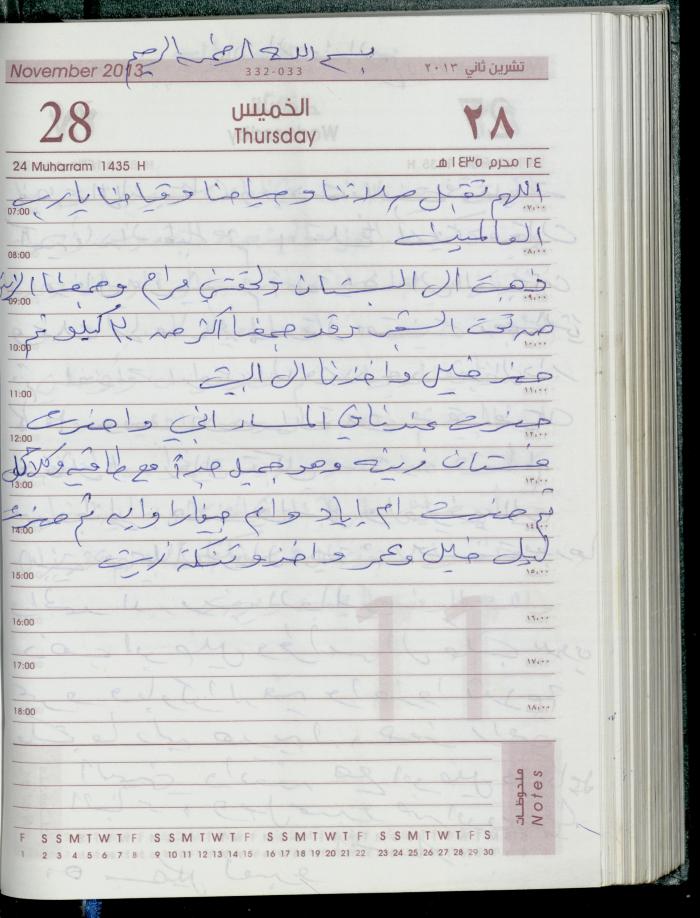 بسم الله الرحمن الرحيم
November 2013 332-033 تشرين ثاني ٢٠١٣
28 الخميس ٢٨
Thursday
24 Muharram 1435 H ٢٤ محرم ١٤٣٥ هـ
اللهم تقبل صلاتنا وصيامنا وقيامنا يارب
07:00 ٠٧,٠٠
العالمين
08:00 ٠٨,٠٠
ذهبت ال البستان ولحقتني مرام وجمعنا
09:00 ٠٩,٠٠
من تحت الشجر وقد جمعنا اكثر من ٢٠ كيلو ثم
10:00 ١٠,٠٠
حضر خليل واخذنا ال البيت
11:00 ١١,٠٠
حضرت عندنا المساء واحضرت
12:00 ١٢,٠٠
فستان زينه وهو جميل جداً مع طاقيه
13:00 ١٣,٠٠
ثم حضرت ام اياد وام وايه ثم حضرت
14:00 ١٤,٠٠
ليل خليل وعمر واخذو تنكة زيت
15:00 ١٥,٠٠
16:00 ١٦,٠٠
17:00 ١٧,٠٠
18:00 ١٨,٠٠
11
ملحوظات
Notes
F S S M T W T F S S M T W T F S S M T W T F S S M T W T F S
1 2 3 4 5 6 7 8 9 10 11 12 13 14 15 16 17 18 19 20 21 22 23 24 25 26 27 28 29 30